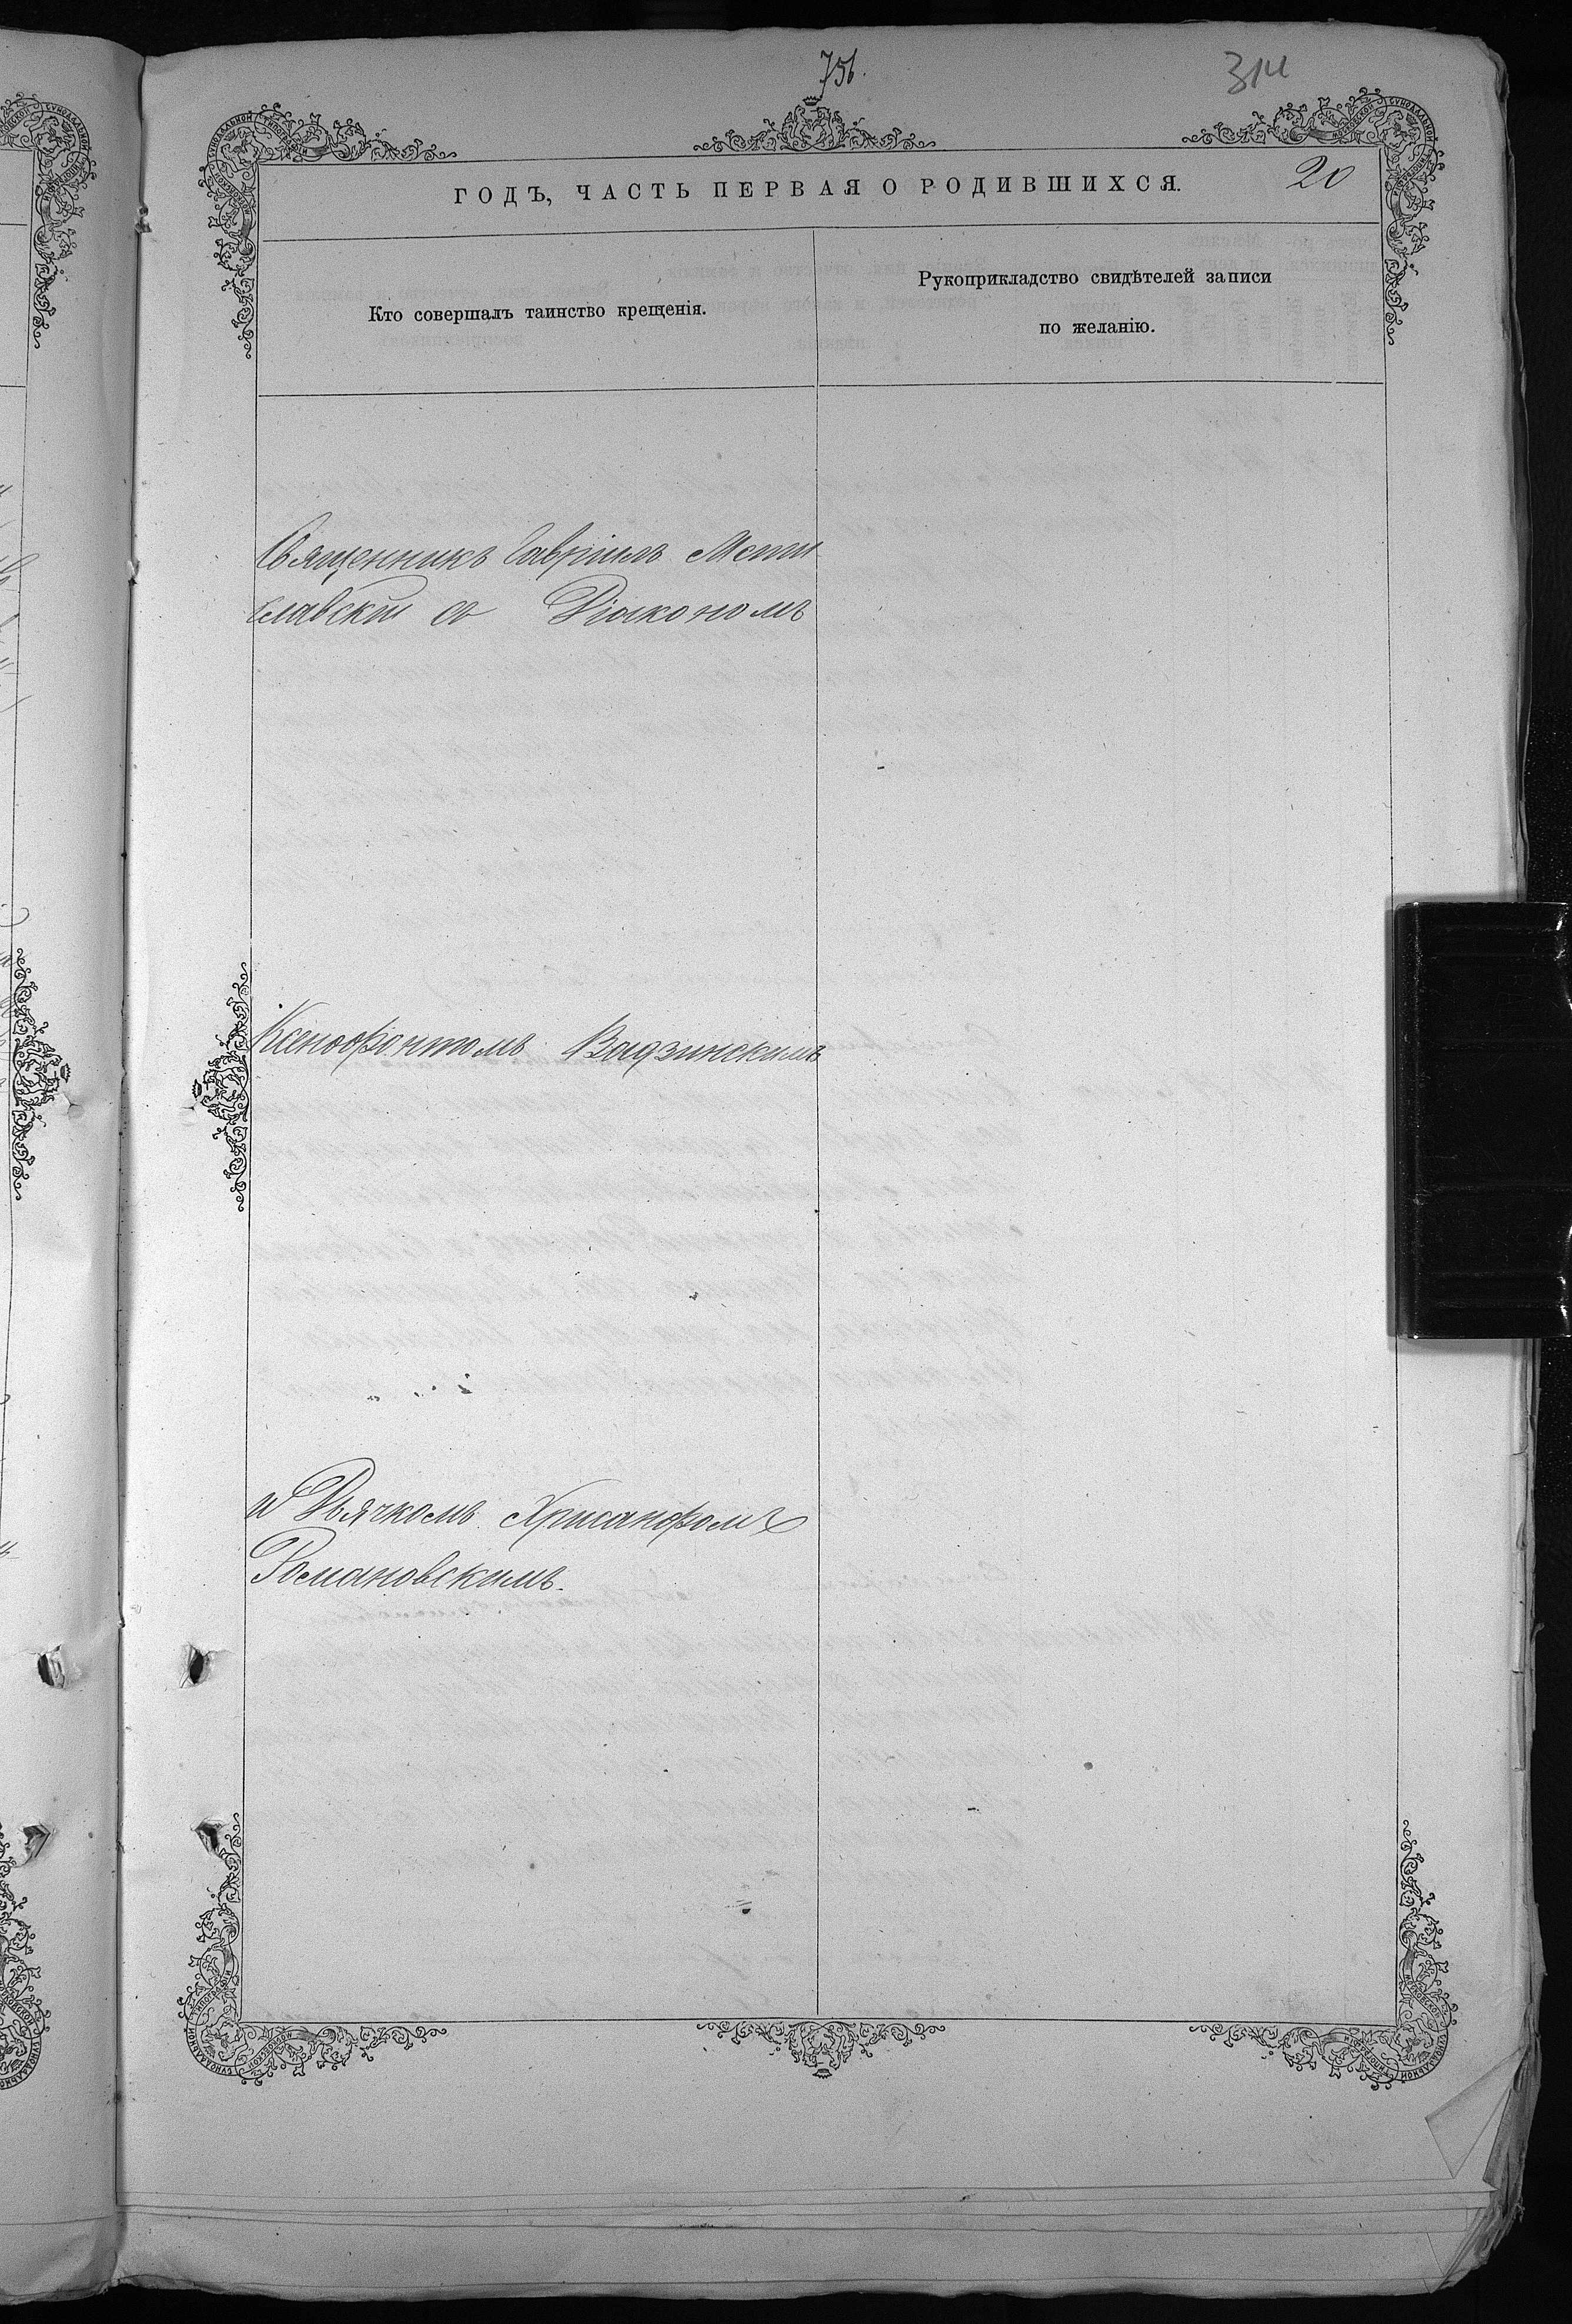 756.
314
20
ГОДЪ, ЧАСТЬ ПЕРВАЯ О РОДИВШИХСЯ.
Кто совершалъ таинство крещенія.
Рукоприкладство свидѣтелей записи
по желанію.
Священникъ Гавріилъ Мсти
славскій съ Діакономъ
Ксенофонтомъ Вадзинскимъ
и Дьячкомъ Хрисанфомъ
Романовскимъ.